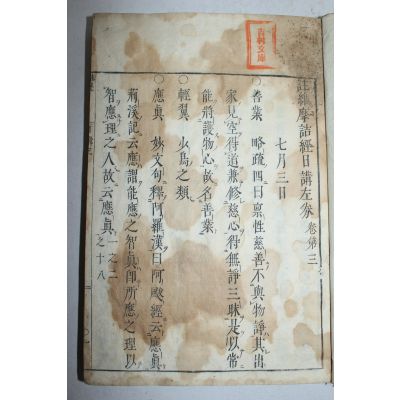 註維摩詰經日講左券 卷第三
七月三日
○善業 略疏四曰稟性慈善不與物諍其出
家見空得道兼修慈心得無諍三昧是以常
能將護物心故名善業
○輕翼 少鳥之類
○應眞 妙文句釋阿羅漢曰阿颰經云應眞
荊溪記云應謂能應之智眞卽所應之理以
智應理之人故云應眞 一之二
之十八